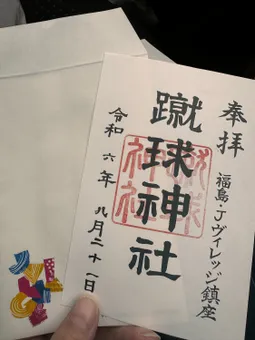 奉拝
福島・Jヴィレッジ鎮座
蹴球神社
蹴球
神社
令和六年 八月二十一日